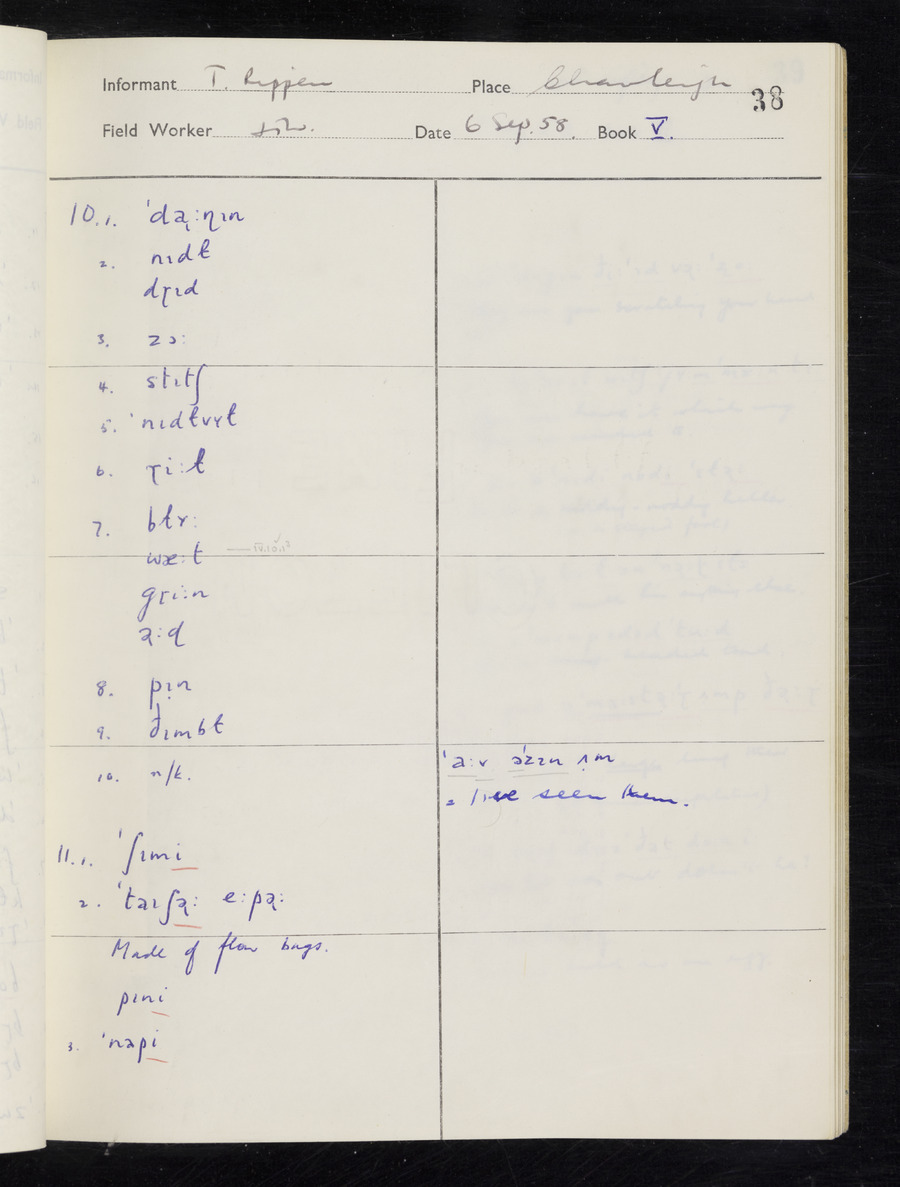 Informant T. Rippen Place Chawleigh
38
Field Worker Date 6 Sep. 58. Book V.
10.1. ˈdą:ɳɪn
2. nɪdɫ
dɽɪd
3. zɔ:
4. stɪtʃ
5. ˈnɪdɫvʏɫ
6. ɽi:ɫ
7. bɫʏ:
wæ:t — IV.10.13
gɽi:n
8. pɪn
9. ðɪmbɫ
10. n/k.
ˈa:v əˈzɪn əm
= I've seen them.
11.1. ˈʃɪmi
2. ˈtaɪʃə̨: e:pə̨:
Made of flour bags.
pɪni
3. ˈnapi